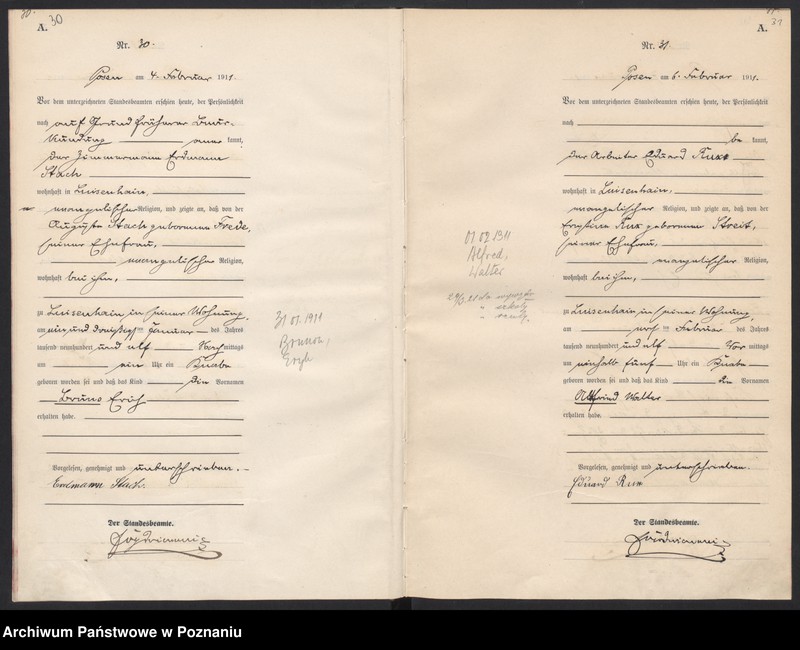 30.
30
A.
Nr. 30.
Posen am 4. Februar 1911.
Vor dem unterzeichneten Standesbeamten erschien heute, der Persönlichkeit
nach auf Grund früherer Beur-
kundung kannt,
der Zimmermann Erdmann
Stach
wohnhaft in Luisenhain,
evangelischer Religion, und zeigte an, daß von der
Auguste Stach geborenen Frede,
seiner Ehefrau,
evangelischer Religion,
wohnhaft bei ihm,
zu Luisenhain in seiner Wohnung,
am ein und dreißigsten Januar des Jahres
tausend neunhundert und elf Nachmittags
um ein Uhr ein Knabe
geboren worden sei und daß das Kind die Vornamen
Bruno Erich
erhalten habe.
Vorgelesen, genehmigt und unterschrieben.
Erdmann Stach.
Der Standesbeamte.
31 01.1911
Erich
31
A.
Nr. 31.
Posen am 6. Februar 1911.
Vor dem unterzeichneten Standesbeamten erschien heute, der Persönlichkeit
nach
be kannt,
der Arbeiter Eduard Rux
wohnhaft in Luisenhain,
evangelischer Religion, und zeigte an, daß von der
Rux geborenen Streit,
seiner Ehefrau,
evangelischer Religion,
wohnhaft bei ihm,
zu Luisenhain in seiner Wohnung,
am Februar des Jahres
tausend neunhundert und elf Vor mittags
um einhalb fünf Uhr ein Knabe
geboren worden sei und daß das Kind die Vornamen
Walter
erhalten habe.
Vorgelesen, genehmigt und unterschrieben.
Eduard Rux
Der Standesbeamte.
01 02 1911
Alfred,
Walter
Archiwum Państwowe w Poznaniu